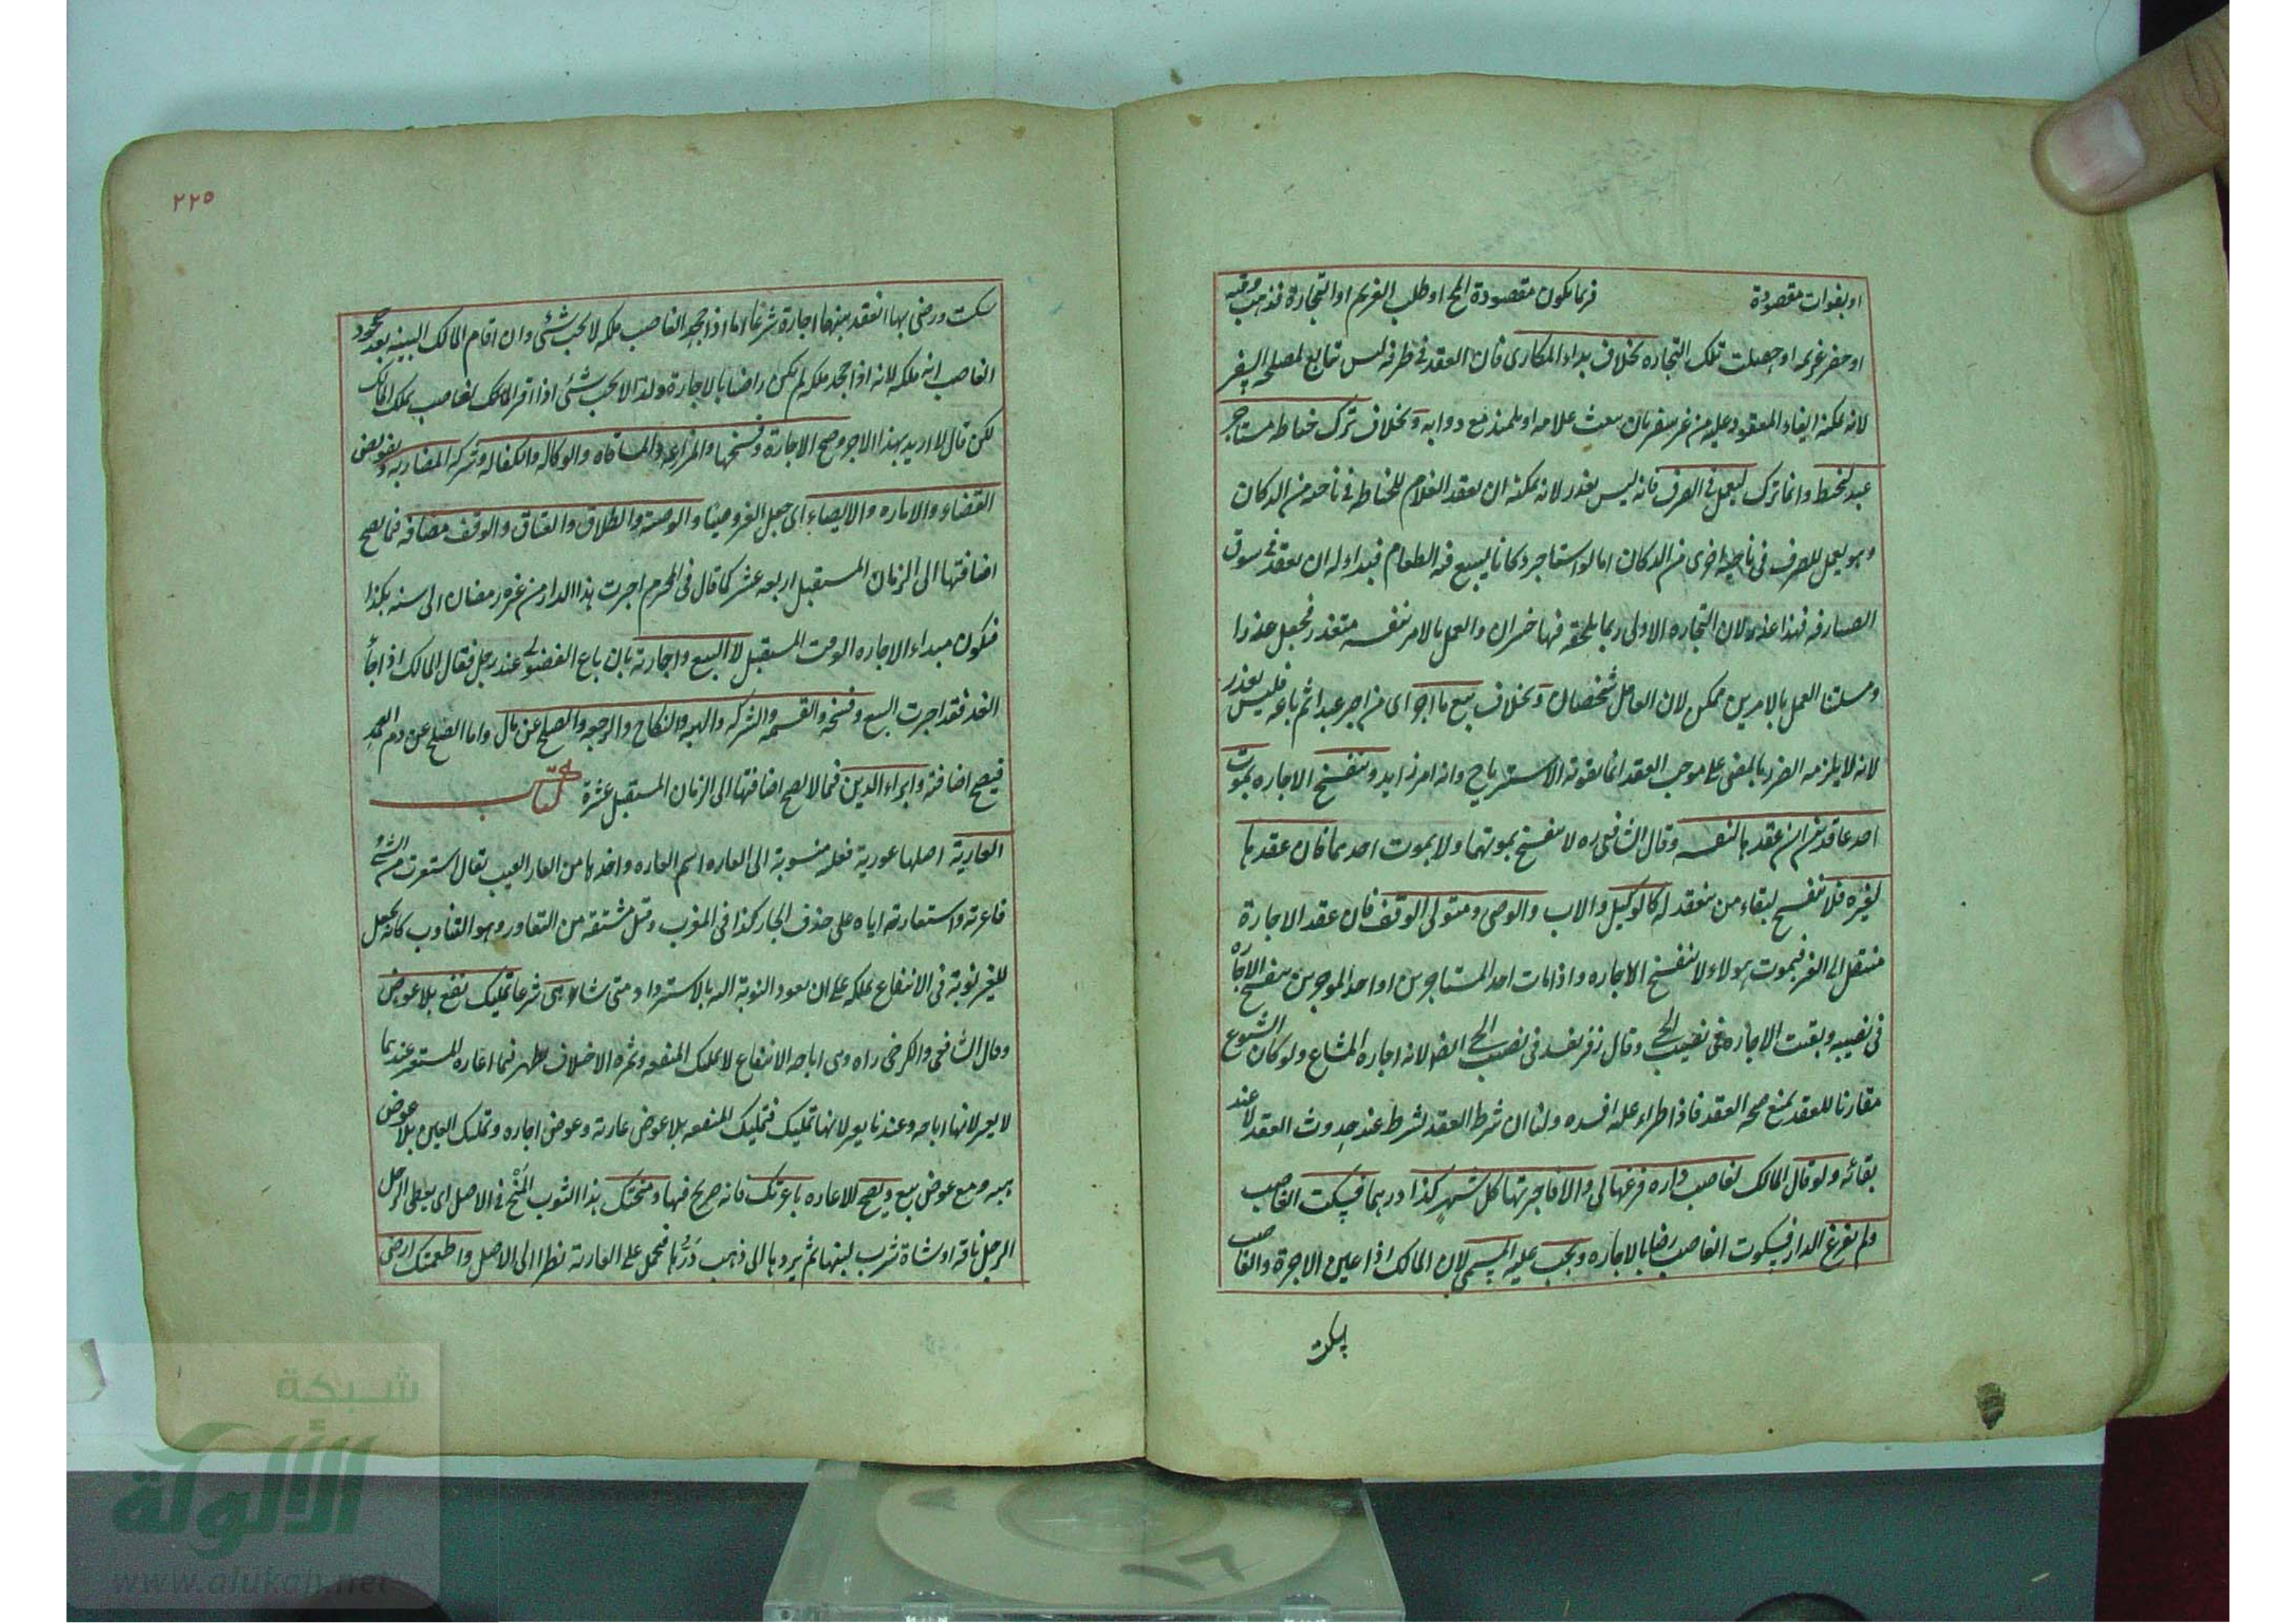 او بفوات مقصودة فربما يكون مقصودة الحج او طلب الغريم او التجارة فذهب وقته
او حضر غريمه او حصلت تلك التجاره بخلاف بداء المكارى فان العقد فى طرفه ليس تابع لمصلحه السفر
لانه يمكنه ايفاء المعقود عليه من غير سفر بان يبعث غلامه او تلميذه مع دوابه وبخلاف ترك خياطه مستاجر
عبد ليخيط وانما ترك ليعمل فى الصرف فانه ليس بعذر لانه يمكنه ان يقعد الغلام للخياطه فى ناحيه من الدكان
وهو يعمل للصرف فى ناحيه اخرى من الدكان اما لو استاجر دكانا ليبيع فيه الطعام فبداء له ان يقعد فى سوق
الصيارفه فهذا عذر لان التجاره الاولى ربما يلحقه فيها خسران والعمل بالامر بنفسه متعذر فجعل عذرا
ومسلتنا العمل بالامرين ممكن لان العامل شخصان وبخلاف بيع ما اجره اى من اجر عبدا ثم باعه فليس بعذر
لانه لا يلزمه الضرر بالمضى على موجب العقد انما يفوته الاسترباح وانه امر زايد وتنفسخ الاجاره بموت
احد عاقدين ان عقدها لنفسه وقال الشافعى ره لا تنفسخ بموتهما ولا بموت احدهما فان عقدها
لغيره فلا تنفسخ لبقاء من ينعقد له كالوكيل والاب والوصى ومتولى الوقف فان عقد الاجارة
منتقل الى الغير فبموت هولاء لا تنفسخ الاجاره واذا مات احد المستاجرين او احد الموجرين تنفسخ الاجاره
فى نصيبه وبقيت الاجاره فى نصيب الحى وقال زفر يفسد فى نصيب الحى ايضا لانه اجاره المشاع ولو كان الشيوع
مقارنا للعقد يمنع صحه العقد فاذا طراء عليه افسده ولنا ان شرط العقد يشرط عند حدوث العقد لا عند
بقائه ولو قال المالك لغاصب داره فرغها لى والا فاجرتها كل شهر كذا درهما فسكت الغاصب
ولم يفرغ الدار فسكوت الغاصب رضا بالاجاره ويجب عليه المسمى لان المالك اذا عين الاجرة والغاصب
سكت
٢٢٥
سكت ورضى بها انعقد بينهما اجارة شرعا اما اذا جحد الغاصب ملكه لا يجب شئى وان اقام المالك البينه بعد جحود
الغاصب انه ملكه لانه اذا جحد ملكه لم يكن راضيا بالاجارة ولذا لا يجب شئى اذا اقر المالك لغاصب بملك المالك
لكن قال لا اريد بهذا الاجر وصح الاجارة وفسخها والمزارعه والمساقاه والوكاله والكفاله وشركه المضاربه وتفويض
القضاء والاماره والايصاء اى جعل الغير وصيا والوصيه والطلاق والعتاق والوقف مضافه فما يصح
اضافتها الى الزمان المستقبل اربعه عشر كما قال فى المحرم اجرت هذا الدار من غره رمضان الى سنه بكذا
فيكون مبداء الاجاره الوقت المستقبل لا البيع واجازته بان باع الفضولى عند رجل فقال المالك اذا جاء
الغد فقد اجزت البيع وفسخه والقسمه والشركه والهبه والنكاح والرجعه والصلح عن مال واما الصلح عن دم العمد
فيصح اضافته وابراء الدين فما لا يصح اضافتها الى الزمان المستقبل عشرة كتاب
العارية اصلها عورية فعليه منسوبة الى العاره اسم العاره واخذها من العار العيب يقال استعرت من الشئ
فاعرته واستعارته اياه على حذف الجار كذا فى المغرب وقيل مشتقه من التعاور وهو التناوب كانه يجعل
للغير نوبة فى الانتفاع بملكه على ان يعود النوبة اليه بالاسترداد متى شاء هى شرعا تمليك نفع بلا عوض
وقال الشافعى والكرخى ره هى اباحه الانتفاع لا يملك المنفعه وثمره الاختلاف يظهر فيما اعاره المستعير عندهما
لا يعير لانها اباحه وعندنا يعير لانها تمليك فتمليك المنفعه بلا عوض عاريه وبعوض اجاره وتمليك العين بلا عوض
هبه ومع عوض بيع ويصح الاعاره باعرتك فانه صريح فيها ومنحتك هذا الثوب المَنْحُ فى الاصل اى يعطى الرجل
الرجل ناقه او شاة يشرب لبنها ثم يردها الى ذهب دَرُّها فحمل على العاريه نظرا الى الاصل واطعمتك ارضى
شبكة
الألوكة
www.alukah.net